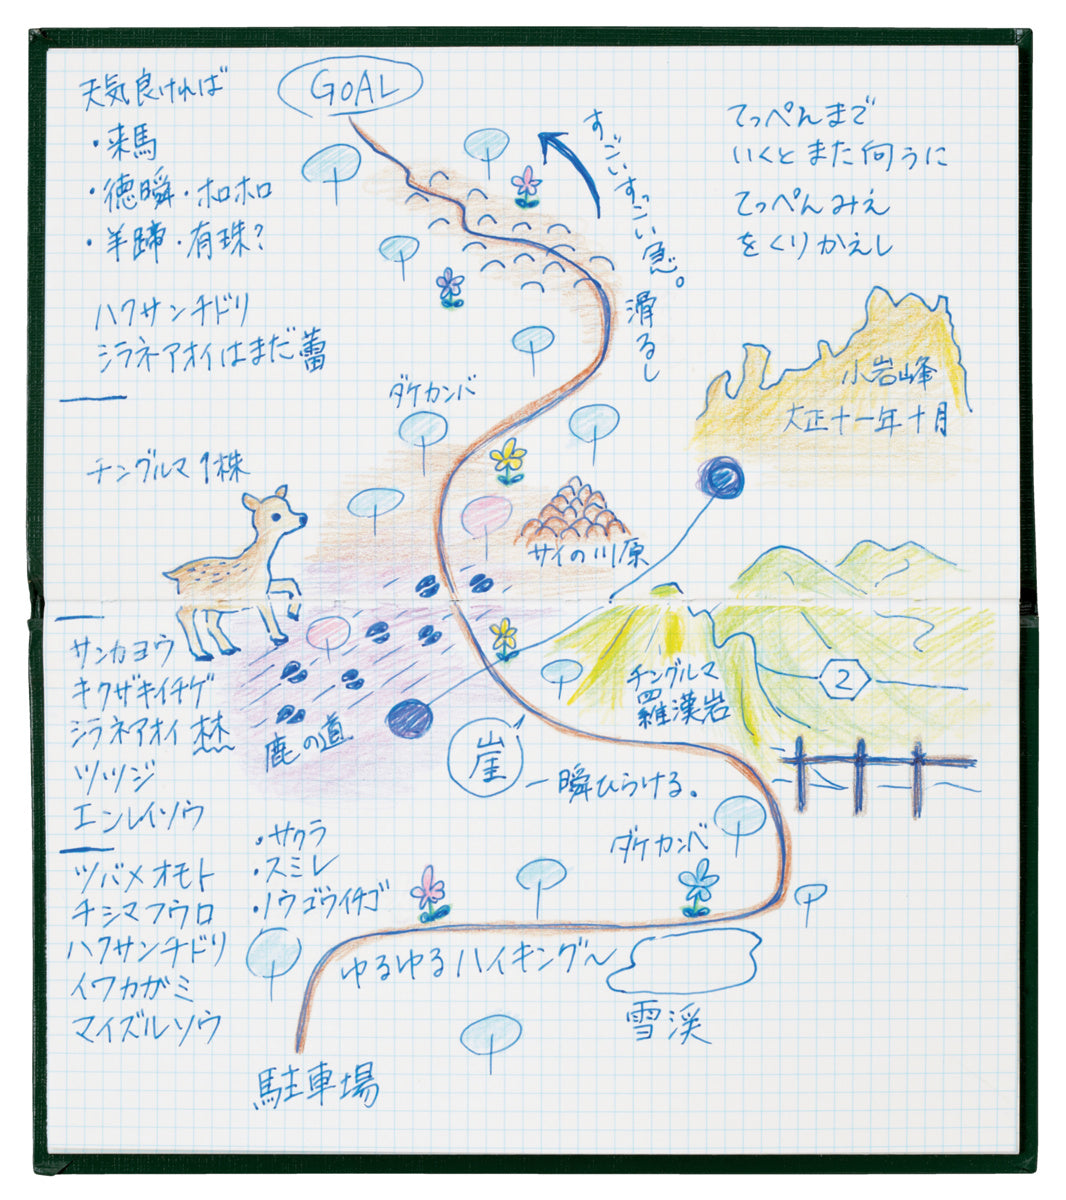 GOAL
天気良ければ
・来馬
・徳瞬・ホロホロ
・羊蹄・有珠?
ハクサンチドリ
シラネアオイはまだ蕾
すごいすっごい急。
滑るし
てっぺんまで
いくとまた向うに
てっぺんみえ
をくりかえし
小岩峰
大正十一年十月
ダケカンバ
チングルマ1株
サイの川原
チングルマ
羅漢岩
2
サンカヨウ
キクザキイチゲ
シラネアオイ 林
ツツジ
エンレイソウ
鹿の道
崖
一瞬ひらける。
ダケカンバ
ツバメオモト
チシマフウロ
ハクサンチドリ
イワカガミ
マイズルソウ
・サクラ
・スミレ
・ノウゴウイチゴ
ゆるゆるハイキング〜
雪渓
駐車場